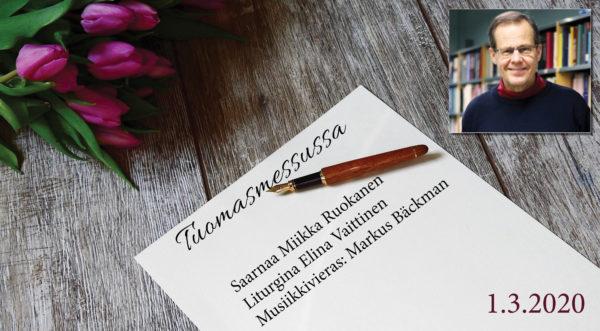 Tuomasmessussa
Saarnaa Miikka Ruokanen
Liturgina Elina Vaittinen
Musiikkivieras: Markus Bäckman
1.3.2020